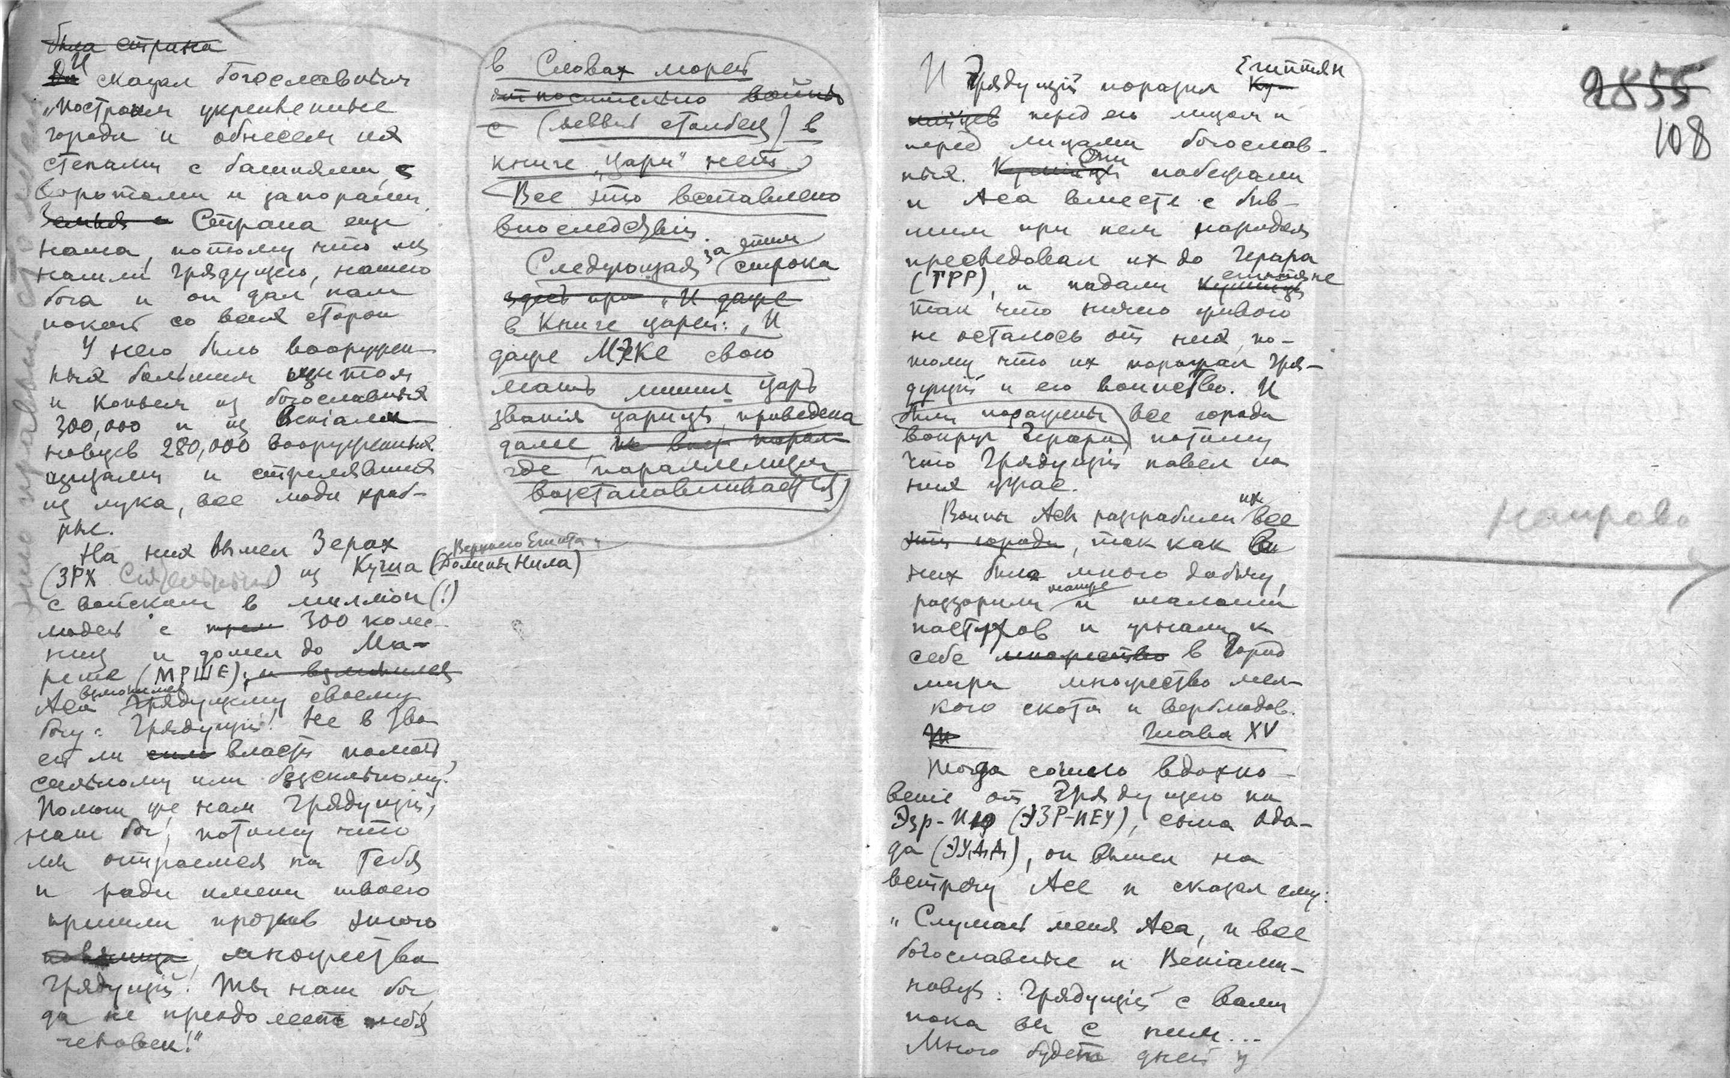 была страна
И сказал богославным
„построим укрепленные
города и обнесем их
стенами с башнями, с
воротами и запорами.
Земля и Страна еще
наша, потому что мы
нашли Грядущего, нашего
бога и он дал нам
покой со всех сторон
У него было вооружен-
ных большим щитом
и копьем из богославных
300,000 и из Веніами-
новцев 280,000 вооруженных
щитами и стрелявших
из лука, все люди храб-
рые.
На них вышел Зерах
(ЗРХ) из Куша (Верхнего Египта, Долины Нила)
с войском в милліон (!)
людей с 300 колес-
ниц и дошел до Ма-
реше (МРШЕ), и взмолился
Аса взмолился Грядущему своему
богу: Грядущій! Не в тво
ей ли силе власти помочь
сильному или безсильному?
Помоги же нам Грядущій,
наш бог, потому что
мы опираемся на Тебя
и ради имени твоего
пришли против этого
множества
Грядущій! Ты наш бог,
да не преодолеет тебя
человек!"
в Словах морей
относительно войны
с (левый столбец) в
книге „Цари" нет.
Все это вставлено
впоследствіи
Следующая за этим строка
здесь при „И даже
в Книге царей: „И
даже МЭКЕ свою
мать лишил царь
званія царицы, приведена
далее
где параллелизм
возстанавливается)
И Грядущій поразил Египтян
перед его лицом и
перед лицами богослав-
ных. Они побежали
и Аса вместе с быв-
шим при нем народом
преследовал их до Герара
(ГРР), и падали египтяне
так что ничего живого
не осталось от них, по-
тому что их поражал Гря-
дущій и его воинство. И
были поражены все города
вокруг Герара потому
что Грядущій навел на
них ужас.
Воины Асы разграбили их все
эти города, так как в
них было много добычу,
разорили также и шалаши
пастухов и угнали к
себе множество в Город
мира множество мел-
кого скота и верблюдов.
Глава XV
Тогда сошло вдохно-
веніе от Грядущего на
Эзр-Ию (ЭЗР-ИЕУ), сына Ода-
да (ЭУДД), он вышел на
встречу Асе и сказал ему:
„Слушай меня Аса, и все
богославные и Веніами-
новцы: Грядущій с вами
пока вы с ним...
Много будет дней у
2855
108
направо